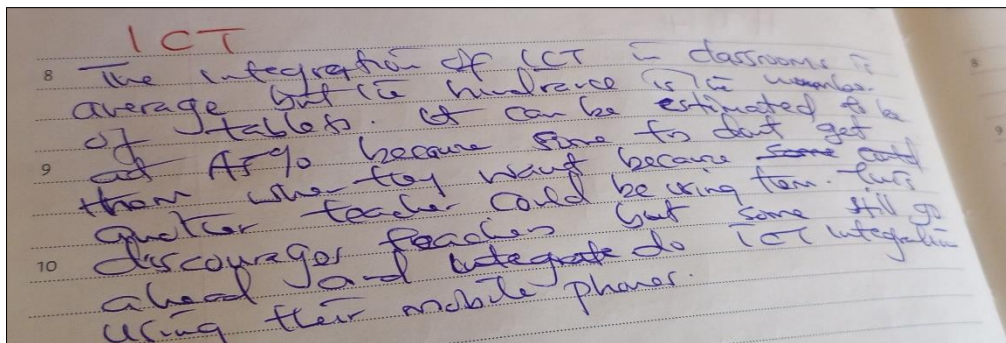 ICT
8 The integration of ICT in classrooms is
average but the hindrance is the number
of tablets. It can be estimated to be
at 45% because some trs dont get
9 them when they want because some could
another teacher could be using tem. This
discourages teachers but some still go
10 ahead and integrate do ICT integration
using their mobile phones.
8
9